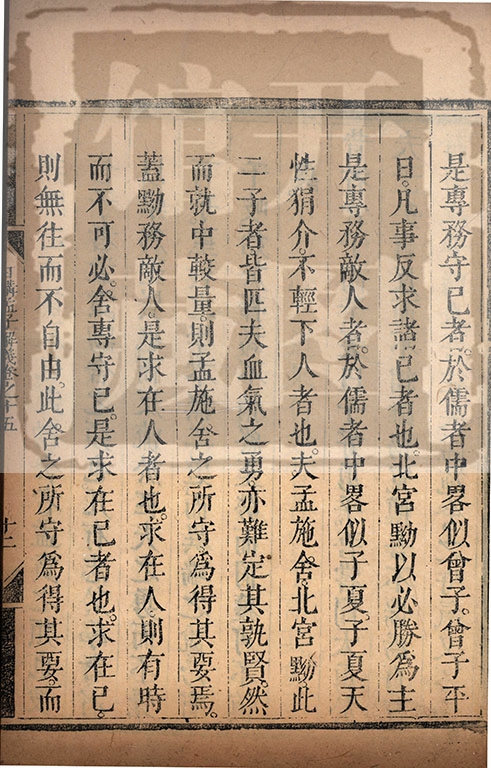 是專務守已者。於儒者中畧似曾子。曾子平
日。凡事反求諸已者也。北宮黝以必勝為主
是專務敵人者。於儒者中畧似子夏。子夏天
性狷介。不輕下人者也。夫孟施舍。北宮黝此
二子者。皆匹夫血氣之勇。亦難定其孰賢。然
而就中較量。則孟施舍之所守為得其要焉。
蓋黝務敵人。是求在人者也。求在人。則有時
而不可必。舍專守已。是求在已者也。求在已。
則無往而不自由。此舍之所守為得其要。而
日講四書解義卷之十五
十二